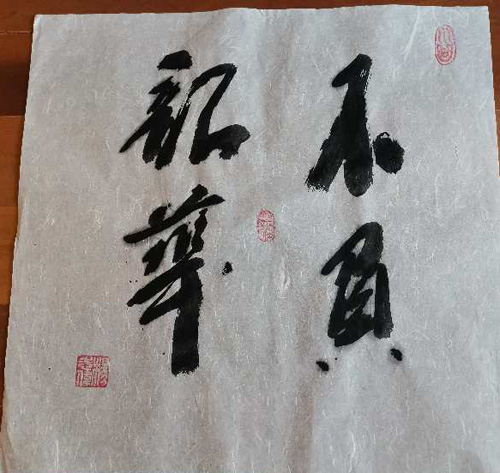 不負
韶華